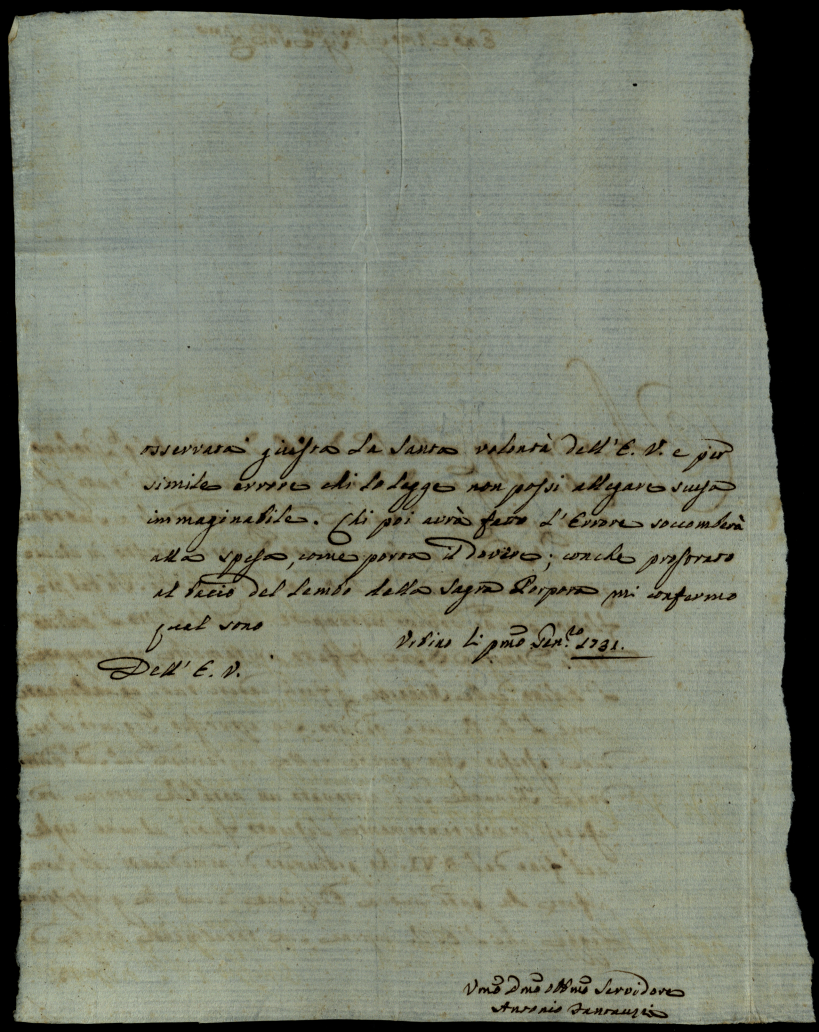 osservata giusta la santa volontà dell' E. V. e per
simile errore chi lo legge non possi allegare scusa
immaginabile. Chi poi avrà fatto l'Errore soccomberà
alla spesa, come porta il Dovere; con che prostrato
al bacio del lembo della Sagra Porpora mi confermo
qual sono
Li pmo Genro 1731.
Dell' E. V.
Vmo Dmo Obbmo Servidore
Antonio